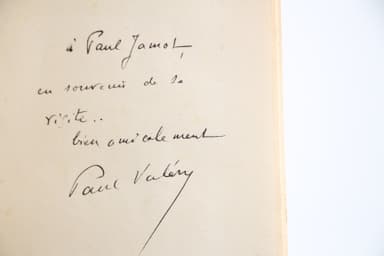 à Paul Jamot,
en souvenir de sa
visite..
bien amicalement
Paul Valéry